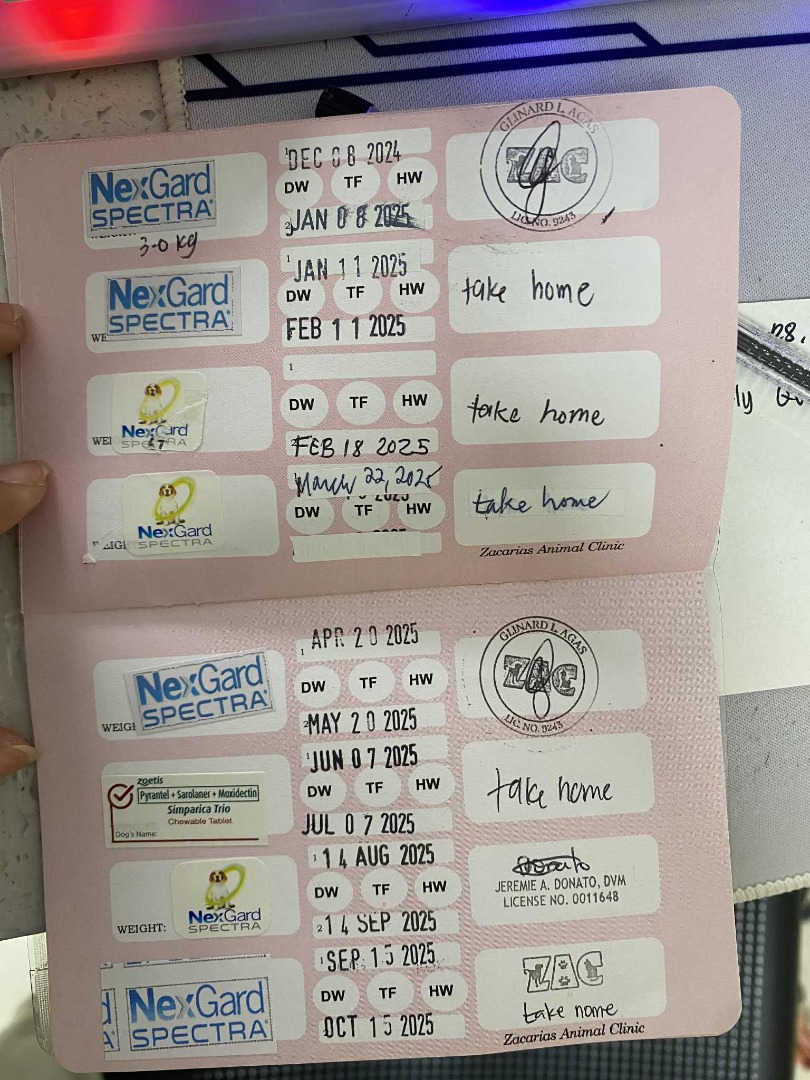 NexGard
SPECTRA
3.0 kg
1 DEC 08 2024
DW TF HW
2 JAN 08 2025
GLINARD L. AGAS
ZAC
LIC. NO. 9243
NexGard
SPECTRA
WE
1 JAN 11 2025
DW TF HW
FEB 11 2025
take home
WEI
NexGard
SPECTRA
1
DW TF HW
FEB 18 2025
take home
NexGard
SPECTRA
March 22, 2025
DW TF HW
take home
Zacarias Animal Clinic
WEIG
NexGard
SPECTRA
1 APR 20 2025
DW TF HW
2 MAY 20 2025
GLINARD L. AGAS
ZAC
LIC. NO. 9243
zoetis
Pyrantel + Sarolaner + Moxidectin
Simparica Trio
Chewable Tablet
Dog's Name:
1 JUN 07 2025
DW TF HW
JUL 07 2025
take home
WEIGHT:
NexGard
SPECTRA
1 14 AUG 2025
DW TF HW
2 14 SEP 2025
JEREMIE A. DONATO, DVM
LICENSE NO. 0011648
NexGard
SPECTRA
1 SEP 15 2025
DW TF HW
OCT 15 2025
ZAC
take home
Zacarias Animal Clinic